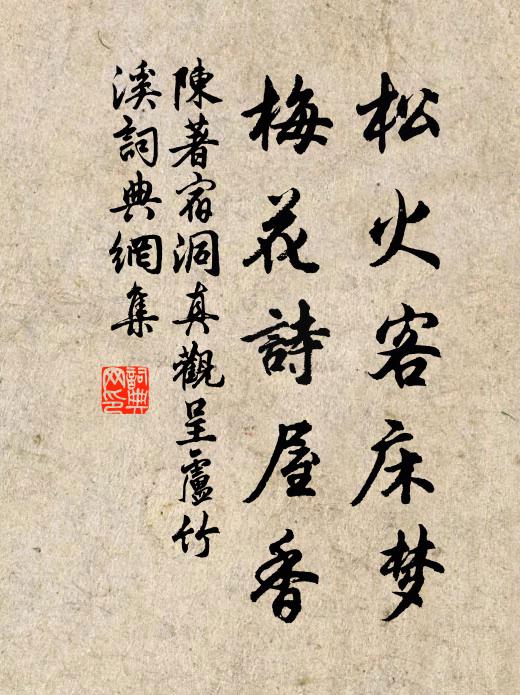 松火客床梦
梅花詩屋香
陳著宿洞真觀呈盧竹
溪詞典網集
詞典网印